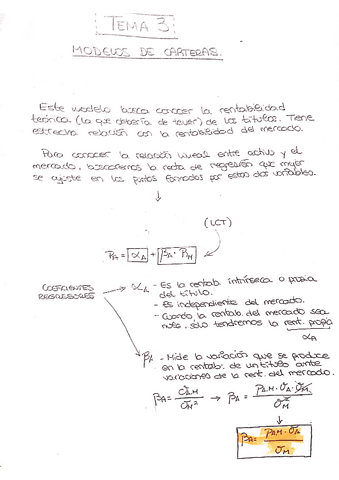 TEMA 3
MODELOS DE CARTERAS.
Este modelo busca conocer la rentabilidad
teórica. (La que debería de tener) de los títulos. Tiene
estrecha relación con la rentabilidad del mercado.
Para conocer la relación lineal entre activo y el
mercado, buscaremos la recta de regresión que mejor
se ajuste en los puntos formados por estas dos variables.
↓
(LCT)
PA = αA + βA · PM
COEFICIENTES
REGRESORES
αA - Es la rentab. intrínseca o propia
del título.
- Es independiente del mercado.
- Cuando la rentab. del mercado sea
nula, sólo tendremos la rent. propia
αA
βA - Mide la variación que se produce
en la rentab. de un título ante
variaciones de la rent. del mercado.
βA = σA.M / σM² → βA = ρA.M · σA · σM / σM²
↓
βA = ρAM · σA / σM